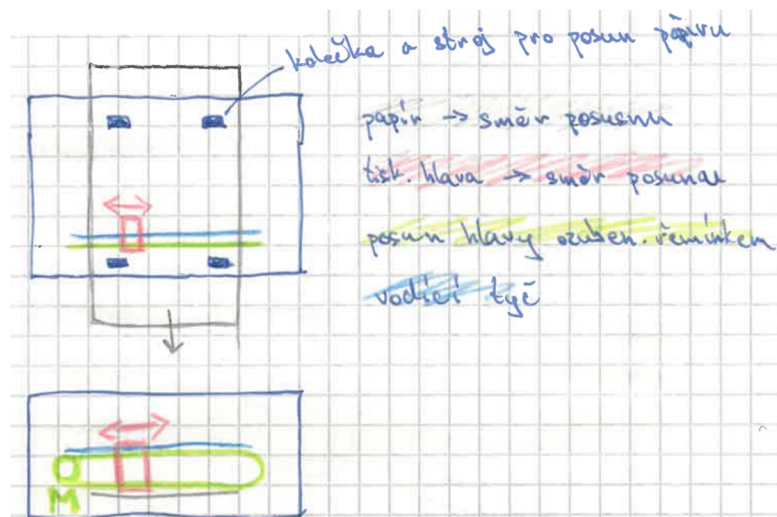 kolečka a stroj pro posun papíru
papír → směr posusnu
tisk. hlava → směr posunau
posun hlavy ozuben. řemínkem
vodící tyč
M